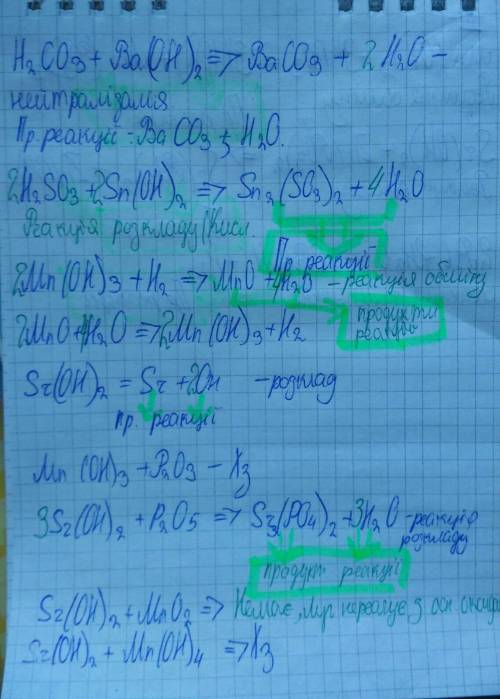 H₂CO₃ + Ba(OH)₂ => BaCO₃ + 2H₂O –
нейтралізація
Пр. реакції : BaCO₃ + H₂O.
2H₂SO₃ + 2Sn(OH)₂ => Sn₂(SO₃)₂ + 4H₂O
Реакція розкладу
Пр. реакції
2Mn(OH)₃ + H₂ => MnO + 4H₂O – реакція обміну
2MnO + 4H₂O => 2Mn(OH)₃ + H₂
продукти
реакції
Sr(OH)₂ = Sr + 2OH – розклад
пр. реакції
Mn(OH)₃ + P₂O₃ – Хз
3Sr(OH)₂ + P₂O5 => Sr₃(PO₄)₂ + 3H₂O – реакція
розкладу
продукт реакції
Sr(OH)₂ + MnO₂ => Немає, не реагує з
Sr(OH)₂ + Mn(OH)₄ => Хз